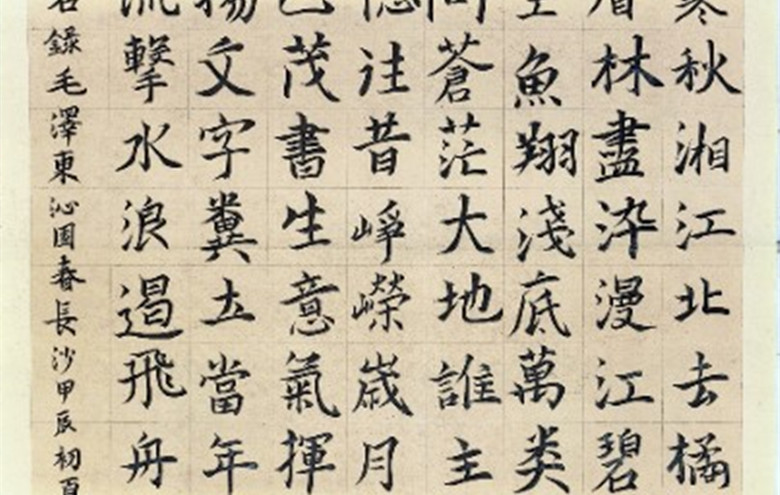 寒秋湘江北去橘
層林盡染漫江碧
空魚翔淺底萬类
問蒼茫大地誰主
憶往昔崢嶸歲月
茂書生意氣揮
揚文字糞土當年
流擊水浪遏飛舟
右錄毛澤東沁园春長沙甲辰初夏